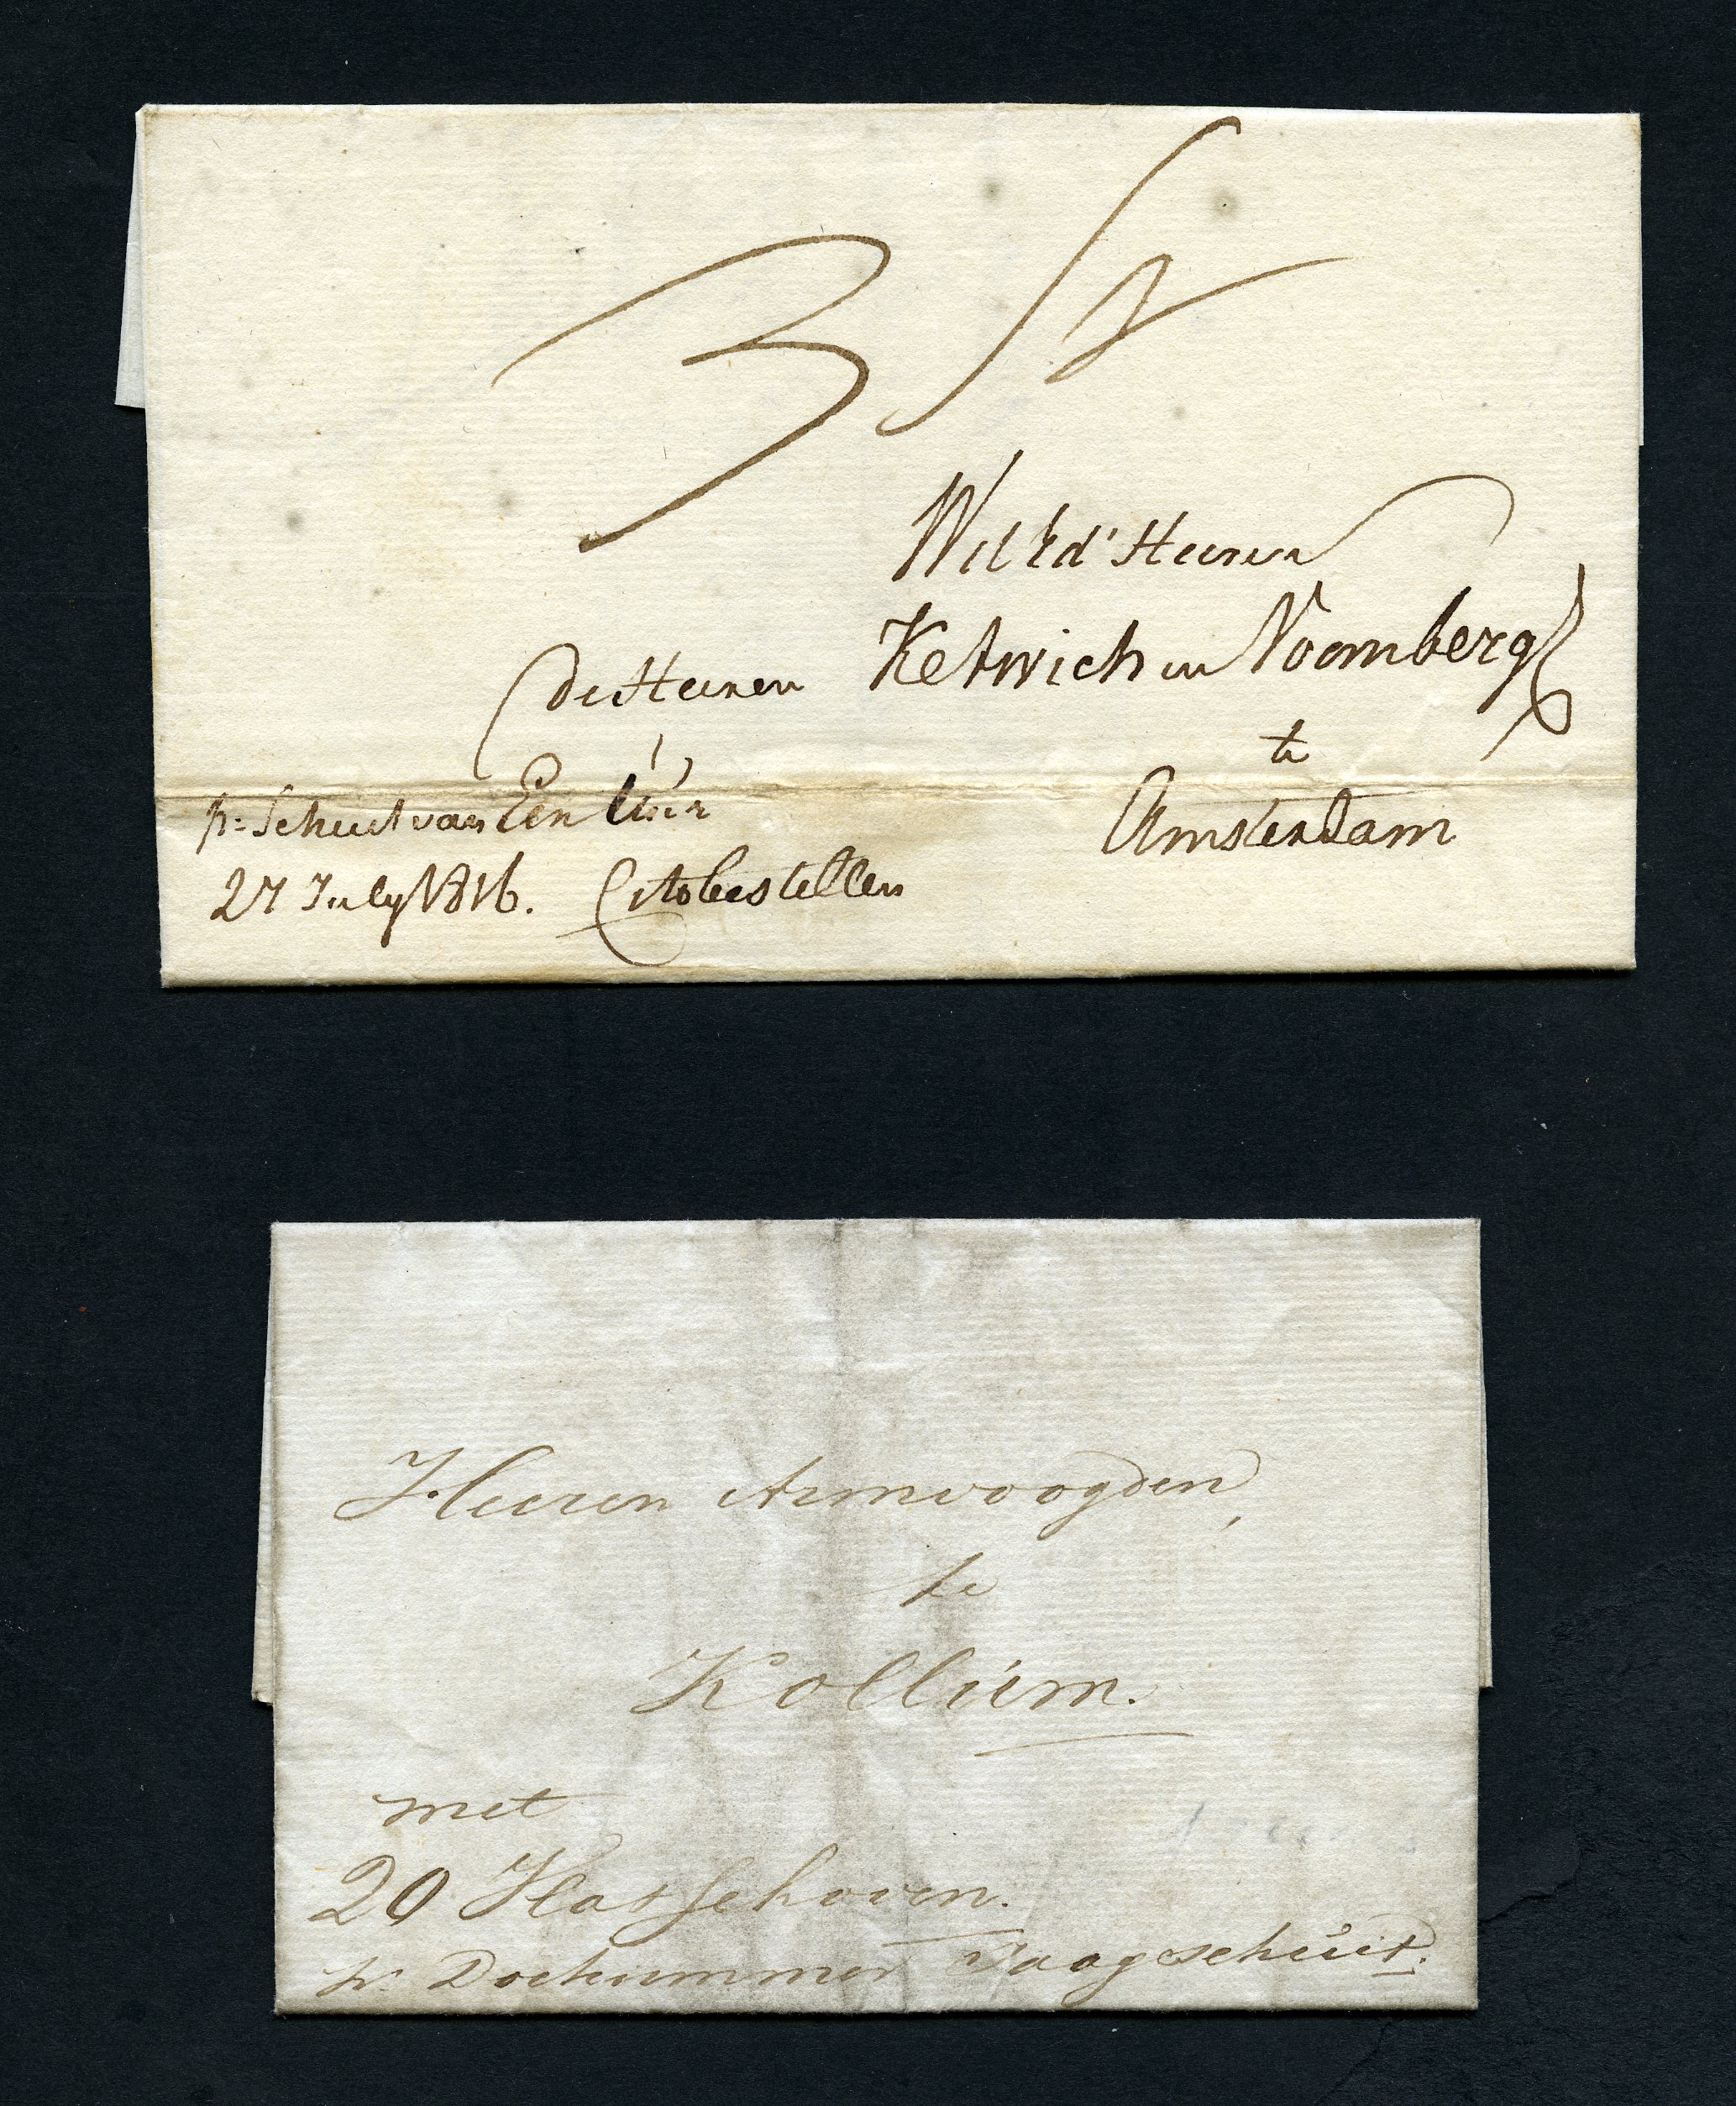 3 St
Wel Ed' Heeren
de Heeren Ketwich en Voomberg
te
Amsterdam
p: Schuit van Een Uur
27 July 1816. Cito bestellen
Heeren Armvoogden,
te
Kollum.
met
20
pr Dockummer Jaagschuit.